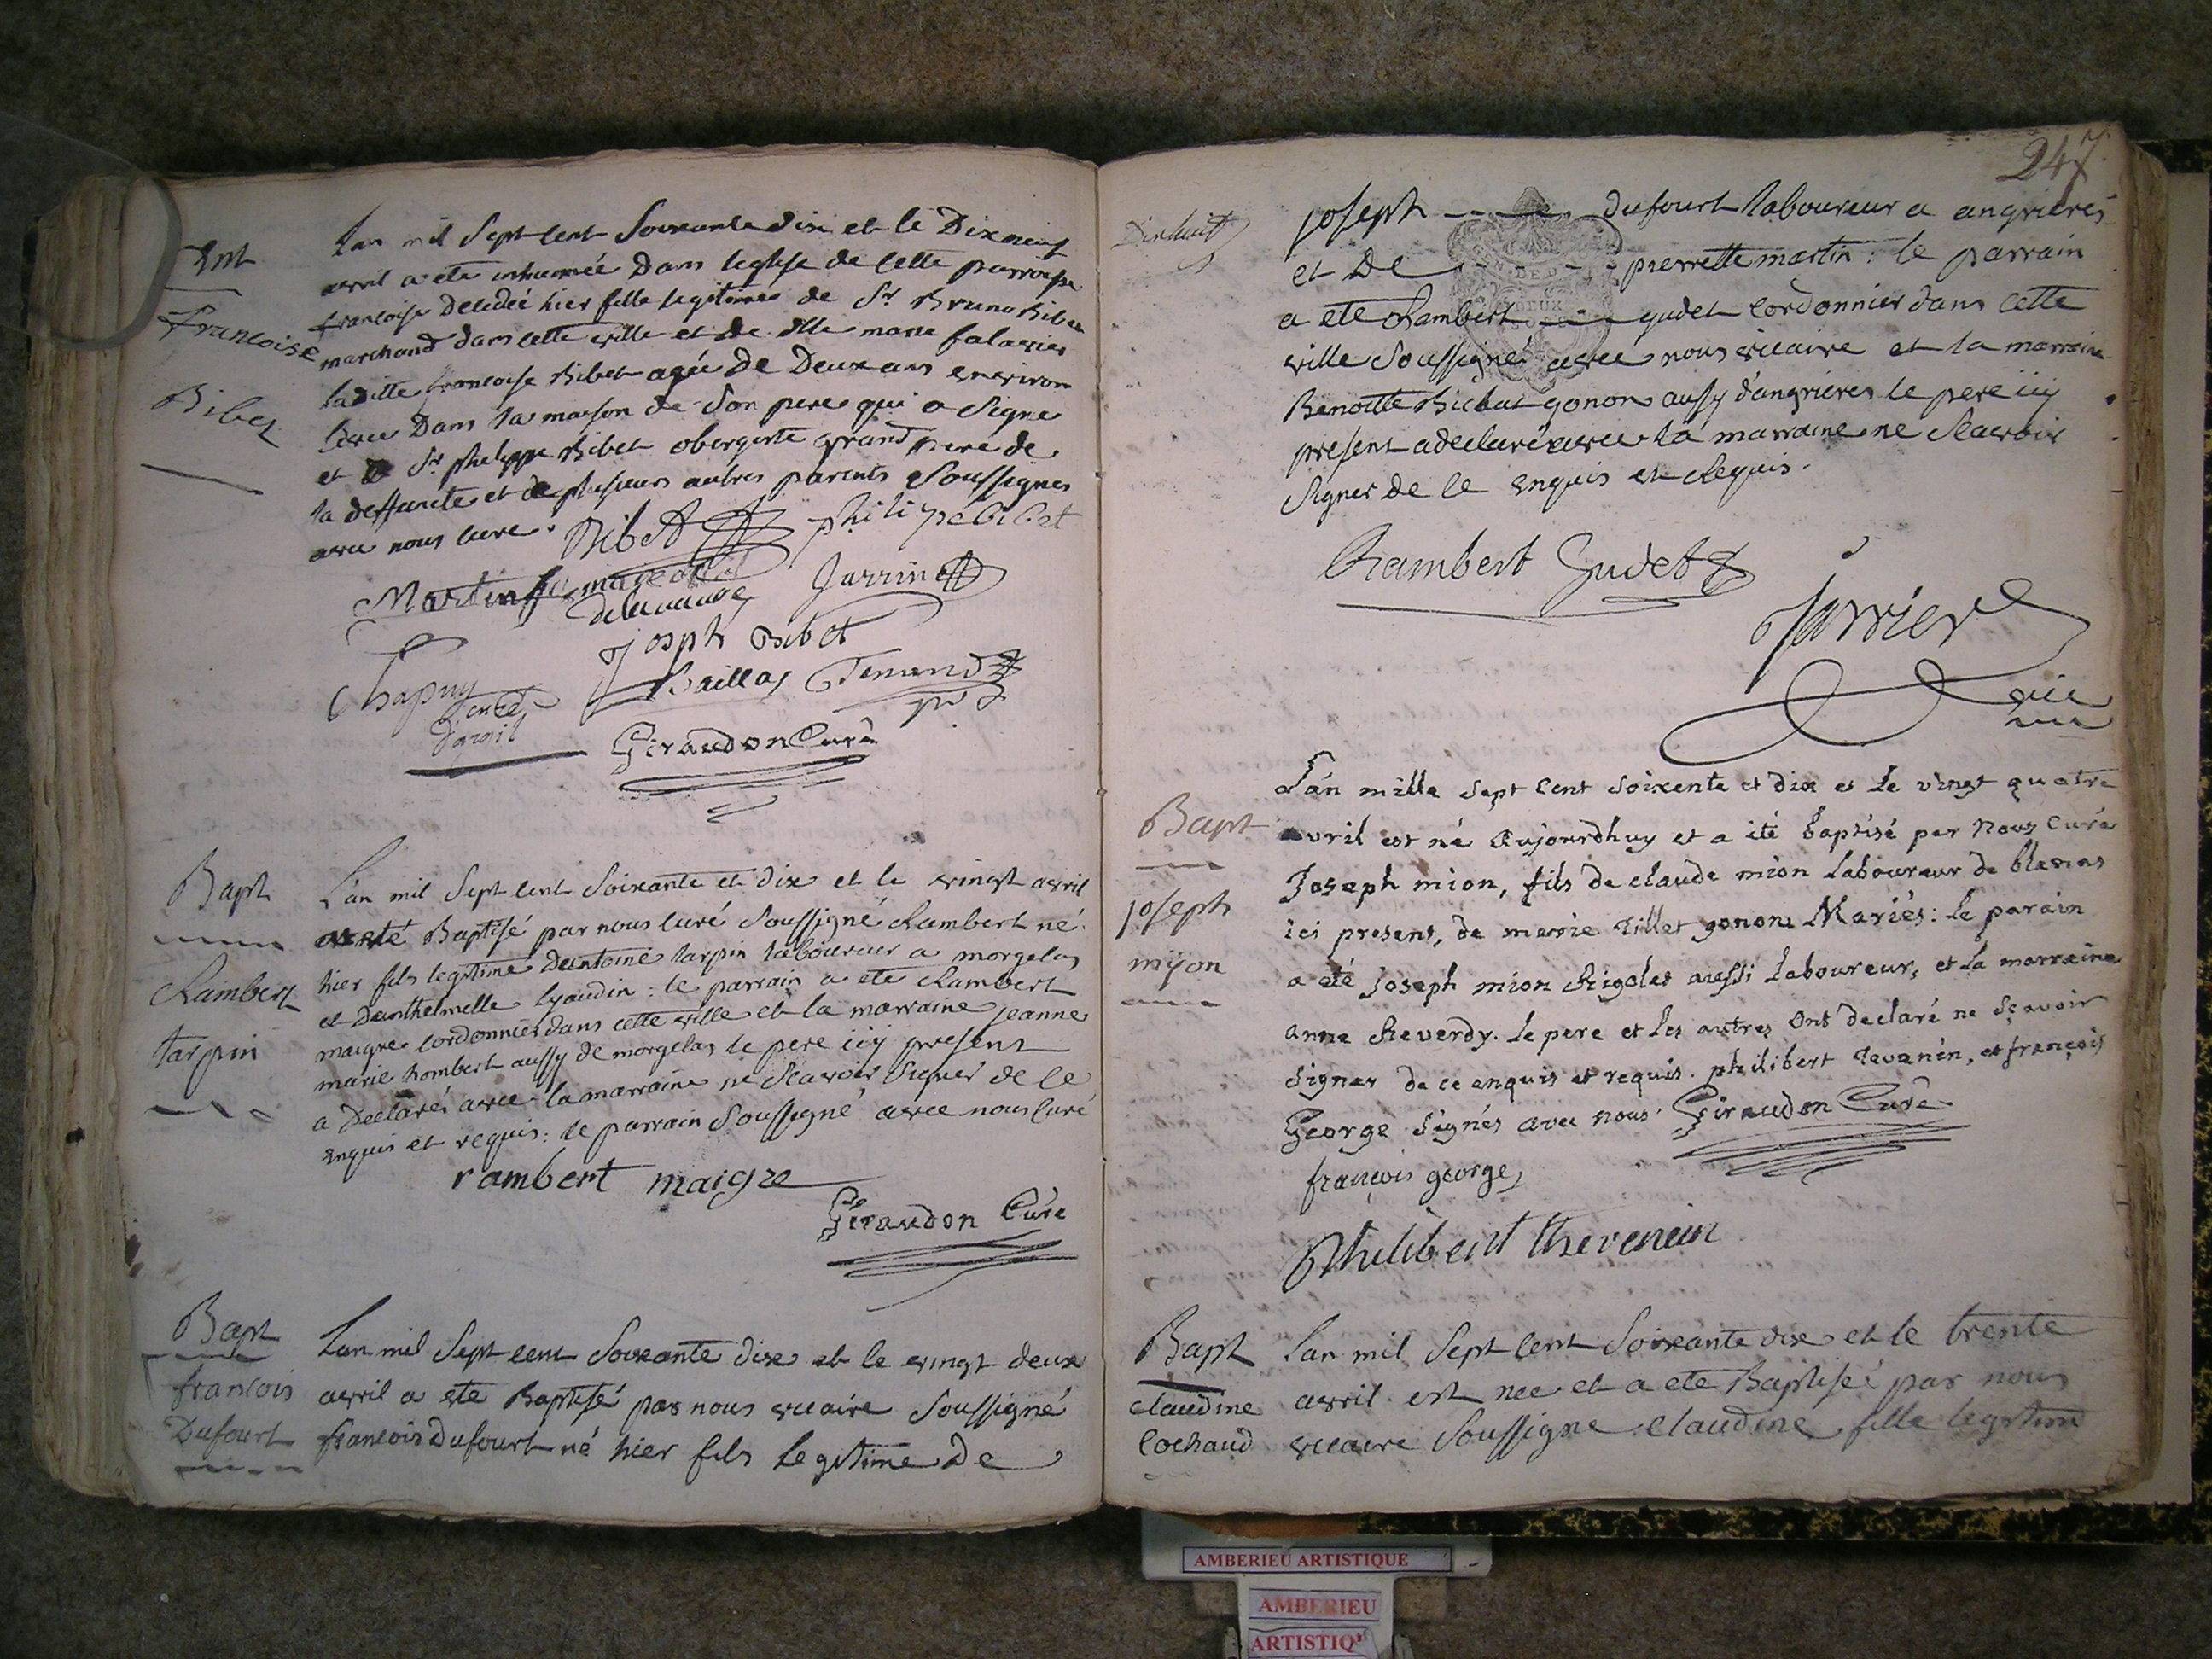 Ent
Francoise
Bibet
Lan mil Sept cent Soixante dix et le Dix neuf
avril a eté inhumée Dans leglise de cette parroisse
francoise decedeé hier fille legitime de Sr Bruno Bibet
marchand dans cette ville et de dlle marie falavier
laditte francoise Bibet ageé De Deux ans environ
Dans la maison de Son pere qui a Signe
et Sr phelippe Bibet obergiste grand pere de
la deffuncte et de plusieurs autres parents Soussignes
avec nous cure.
Bibet philipe bibet
Martin Jarrin
Joseph Bibet
Chapuy Baillas Tenand
Giraudon Curé
Bapt
Rambert
tarpin
L'an mil Sept cent Soixante et dix et le vingt avril
a eté Baptisé par nous curé Soussigné Rambert né
hier fils legitime dantoine tarpin laboureur a morgelas
et Danthelmette lyaudin : le parrain a eté Rambert
maigre cordonnier dans cette ville et la marraine jeanne
marie hombert aussy de morgelas le pere icy present
a Declaré avec la marraine ne Scavoir Signer de ce
enquis et requis : le parrain Soussigné avec nous curé
rambert maigre
Giraudon Curé
Bapt
francois
Dufourt
Lan mil Sept cent Soixante dix et le vingt deux
avril a eté Baptisé par nous vicaire Soussigné
francois Dufourt né hier fils Legitime De
247
Dixhuit
joseph dufourt laboureur a angrieres
et De pierrette martin : le parrain
a eté Rambert gudet cordonnier dans cette
ville Soussigné avec nous vicaire et la marraine
Benoitte Bichat gonon aussy d'angrieres le pere icy
present a declaré avec la marraine ne Scavoir
Signer de ce enquis et Requis.
Rambert Gudet
Jarrier
vic
Bapt
joseph
mijon
L'an mille sept cent soixente et dix et le vingt quatre
avril est né aujourdhuy et a été baptisé par nous curé
Joseph mion, fils de claude mion Laboureur de blanas
ici present, de marie tillet gonon Mariés : le parain
a été joseph mion Rigolet aussi Laboureur, et la marraine
anne Reverdy. Le pere et les autres ont declaré ne sçavoir
signer de ce enquis et requis. philibert tevenin, et françois
George signés avec nous. Giraudon Curé
françois george
Philibert thevenein
Bapt
claudine
Cochaud
Lan mil Sept cent Soixante dix et le trente
avril est nee et a ete Baptiseé par nous
vicaire Soussigne claudine fille legitime
AMBERIEU ARTISTIQUE
AMBERIEU
ARTISTIQ